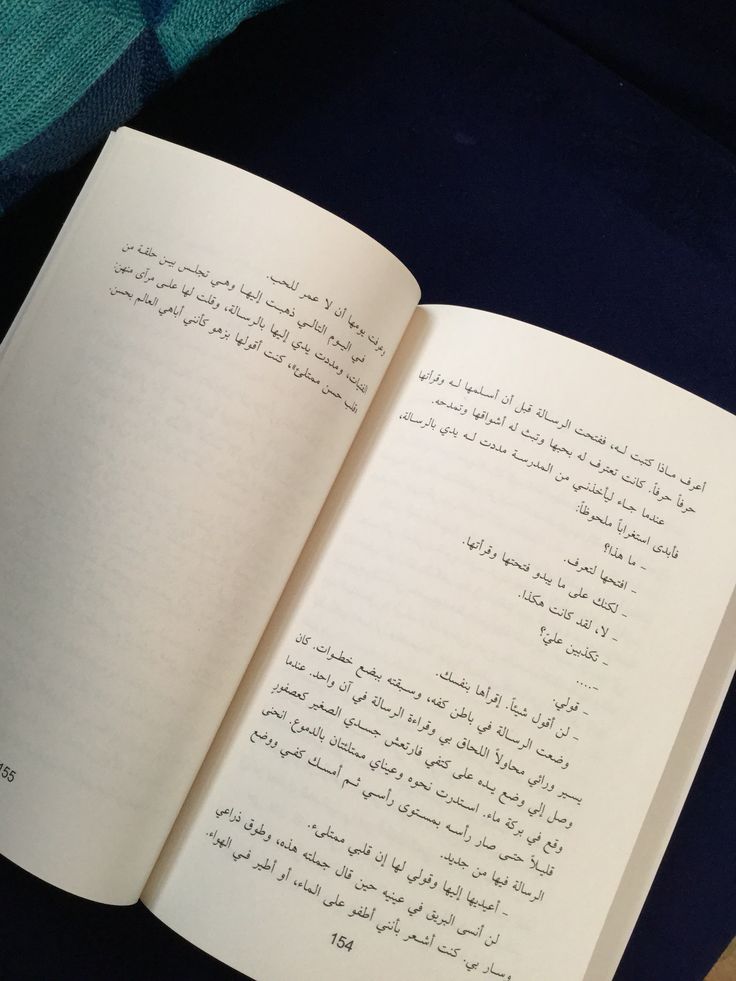 أعرف ماذا كتبت له، ففتحت الرسالة قبل أن أسلمها له وقرأتها
حرفاً حرفاً. كانت تعترف له بحبها وتبث له أشواقها وتمدحه.
عندما جاء ليأخذني من المدرسة مددت له يدي بالرسالة،
فأبدى استغراباً ملحوظاً:
- ما هذا؟
- افتحها لتعرف.
- لكنك على ما يبدو فتحتها وقرأتها.
- لا، لقد كانت هكذا.
- تكذبين عليّ؟
-....
- قولي.
- لن أقول شيئاً. إقرأها بنفسك.
وضعت الرسالة في باطن كفه، وسبقته ببضع خطوات. كان
يسير ورائي محاولاً اللحاق بي وقراءة الرسالة في آن واحد. عندما
وصل إلي وضع يده على كتفي فارتعش جسدي الصغير كعصفورٍ
وقع في بركة ماء. استدرت نحوه وعيناي ممتلئتان بالدموع. انحنى
قليلاً حتى صار رأسه بمستوى رأسي ثم أمسك كفي ووضع
الرسالة فيها من جديد.
- أعيديها إليها وقولي لها إن قلبي ممتلىء.
لن أنسى البريق في عينيه حين قال جملته هذه، وطوق ذراعي
وسار بي. كنت أشعر بأنني أطفو على الماء، أو أطير في الهواء.
154
وعرفت يومها أن لا عمر للحب.
في اليوم التالي ذهبت إليها وهي تجلس بين حلقة من
الفتيات، ومددت يدي إليها بالرسالة، وقلت لها على مرآى منهن:
«قلب حسن ممتلىء»، كنت أقولها بزهو كأنني أباهي العالم بحسن.
155